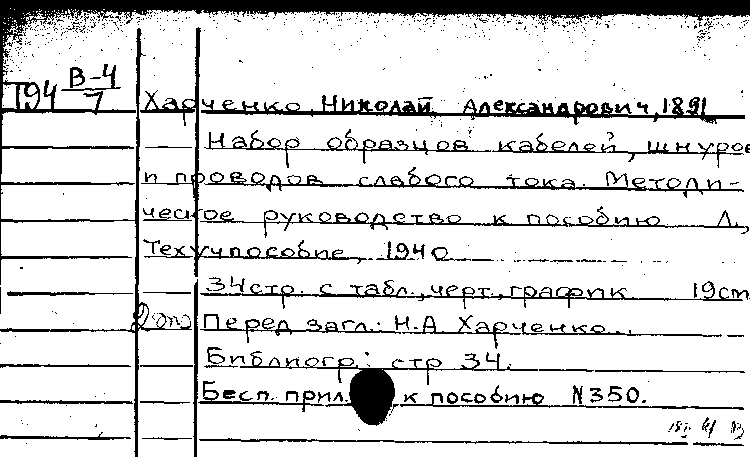 Т94 В-4/7 Харченко, Николай Александрович, 1891
Набор образцов кабелей, шнуров
и проводов слабого тока. Методи-
ческое руководство к пособию Л.,
Техучпособие, 1940
34стр. с табл., черт., график 19см
Перед загл.: Н.А. Харченко..
Библиогр.: стр 34.
Бесп. прил. к пособию N350.